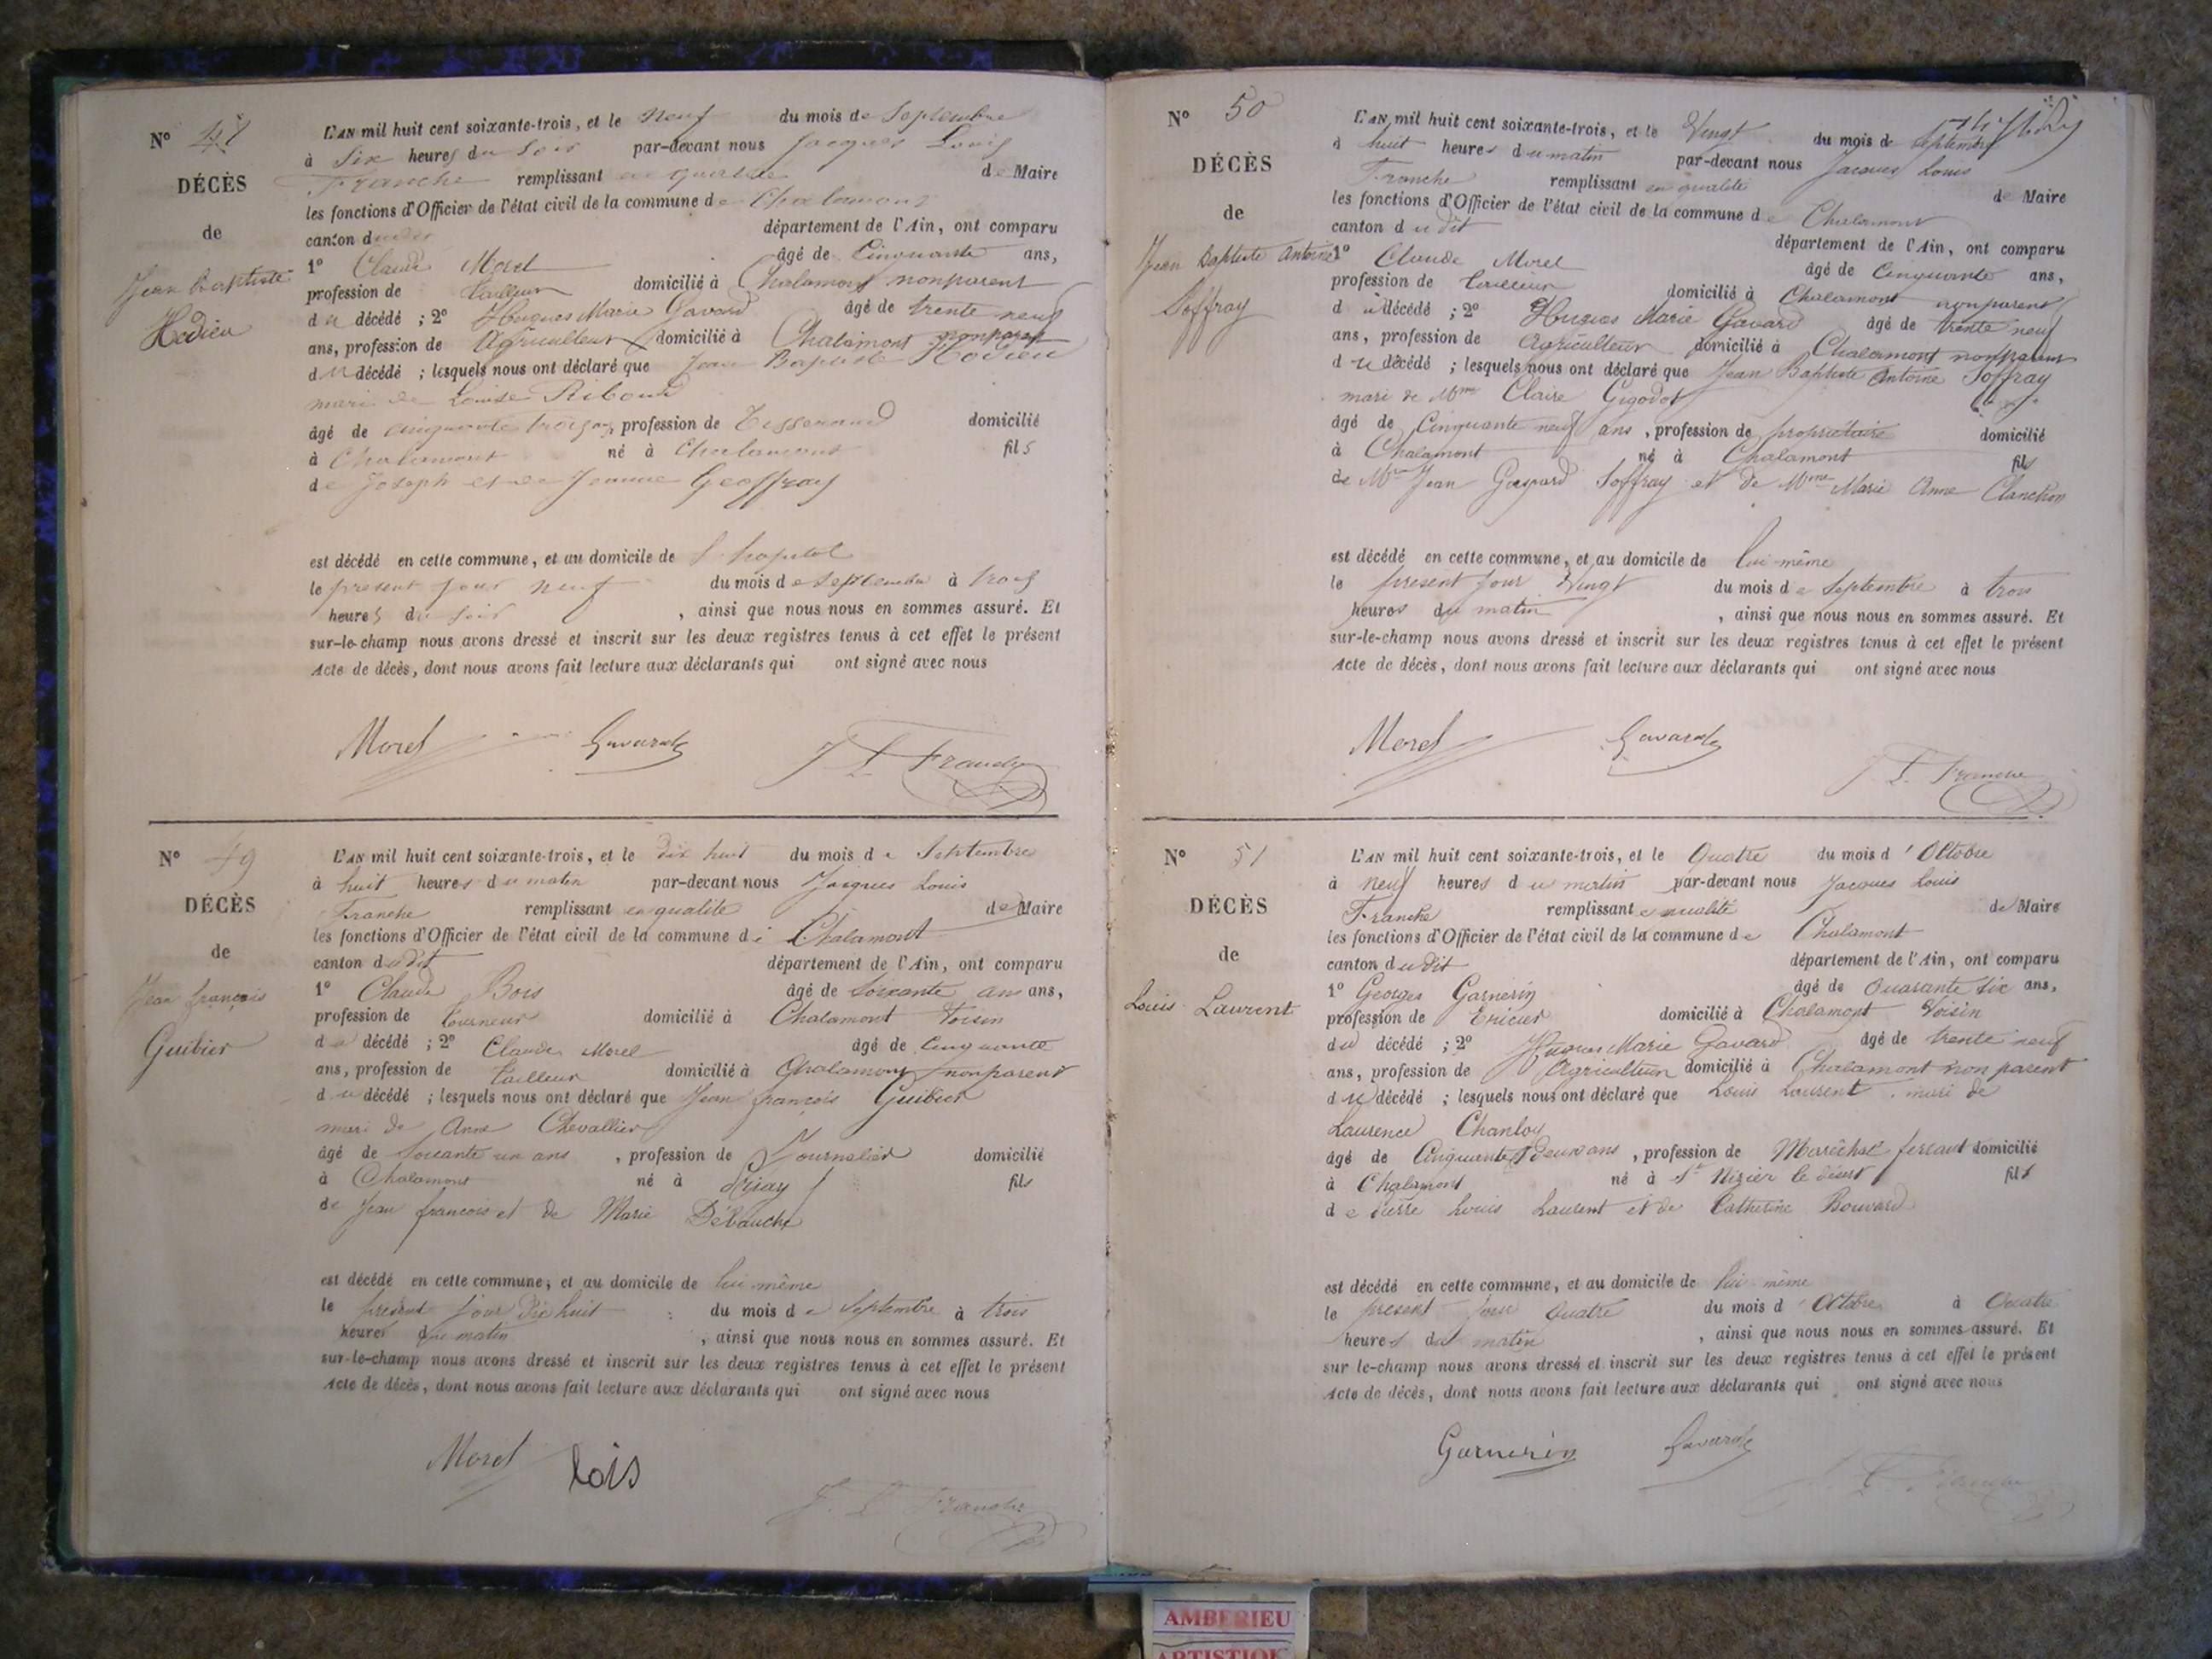 N° 48
DÉCÈS
de
Jean Baptiste
Hodieu
L'AN mil huit cent soixante-trois, et le neuf du mois de Septembre
à Six heures du Soir par-devant nous Jacques Louis
Franche remplissant en qualité de Maire
les fonctions d'Officier de l'état civil de la commune de Chalamont
canton dudit département de l'Ain, ont comparu
1° Claude Morel âgé de Cinquante ans,
profession de tailleur domicilié à Chalamont non parent
du décédé ; 2° Hugues Marie Gavard âgé de trente neuf
ans, profession de Agriculteur domicilié à Chalamont non parent
du décédé ; lesquels nous ont déclaré que Jean Baptiste Hodieu
mari de Louise Riboud
âgé de cinquante trois ans, profession de Tisserand domicilié
à Chalamont né à Chalamont fils
de Joseph et de Jeanne Geoffray
est décédé en cette commune, et au domicile de l'hopital
le present jour neuf du mois de Septembre à trois
heures du soir, ainsi que nous nous en sommes assuré. Et
sur-le-champ nous avons dressé et inscrit sur les deux registres tenus à cet effet le présent
Acte de décès, dont nous avons fait lecture aux déclarants qui ont signé avec nous
Morel Gavard J L Franche
N° 49
DÉCÈS
de
Jean françois
Guibier
L'AN mil huit cent soixante-trois, et le dix huit du mois de Septembre
à huit heures du matin par-devant nous Jacques Louis
Franche remplissant en qualité de Maire
les fonctions d'Officier de l'état civil de la commune de Chalamont
canton dudit département de l'Ain, ont comparu
1° Claude Bois âgé de Soixante ans ans,
profession de tourneur domicilié à Chalamont Voisin
du décédé ; 2° Claude Morel âgé de Cinquante
ans, profession de tailleur domicilié à Chalamont non parent
du décédé ; lesquels nous ont déclaré que Jean françois Guibier
mari de Anne Chevallier
âgé de Soixante un ans, profession de Journalier domicilié
à Chalamont né à fils
de Jean francois et de Marie Débauche
est décédé en cette commune, et au domicile de lui même
le présent jour dix huit du mois de Septembre à trois
heures du matin, ainsi que nous nous en sommes assuré. Et
sur-le-champ nous avons dressé et inscrit sur les deux registres tenus à cet effet le présent
Acte de décès, dont nous avons fait lecture aux déclarants qui ont signé avec nous
Morel bois
J. L Franche
N° 50
DÉCÈS
de
Jean Baptiste Antoine
Soffray
L'AN mil huit cent soixante-trois, et le Vingt du mois de Septembre
à huit heures du matin par-devant nous Jacques Louis
Franche remplissant en qualité de Maire
les fonctions d'Officier de l'état civil de la commune de Chalamont
canton dudit département de l'Ain, ont comparu
1° Claude Morel âgé de Cinquante ans,
profession de tailleur domicilié à Chalamont non parent
du décédé ; 2° Hugues Marie Gavard âgé de trente neuf
ans, profession de Agriculteur domicilié à Chalamont non parent
du décédé ; lesquels nous ont déclaré que Jean Baptiste Antoine Soffray
mari de Mme Claire Gigodot
âgé de Cinquante neuf ans, profession de propriétaire domicilié
à Chalamont né à Chalamont fils
de Mr Jean Gaspard Soffray et de Mme Marie Anne Clanchon
est décédé en cette commune, et au domicile de lui même
le present jour Vingt du mois de Septembre à trois
heures du matin, ainsi que nous nous en sommes assuré. Et
sur-le-champ nous avons dressé et inscrit sur les deux registres tenus à cet effet le présent
Acte de décès, dont nous avons fait lecture aux déclarants qui ont signé avec nous
Morel Gavard
J. L. Franche
N° 51
DÉCÈS
de
Louis Laurent
L'AN mil huit cent soixante-trois, et le Quatre du mois d'Octobre
à neuf heures du matin par-devant nous Jacques Louis
Franche remplissant en qualité de Maire
les fonctions d'Officier de l'état civil de la commune de Chalamont
canton dudit département de l'Ain, ont comparu
1° Georges Garnerin âgé de Quarante Six ans,
profession de Epicier domicilié à Chalamont Voisin
du décédé ; 2° Hugues Marie Gavard âgé de trente neuf
ans, profession de Agriculteur domicilié à Chalamont non parent
du décédé ; lesquels nous ont déclaré que Louis Laurent mari de
Laurence Chanloy
âgé de Cinquante deux ans, profession de Maréchal ferrant domicilié
à Chalamont né à St Nizier le désert fils
de Pierre Louis Laurent et de Catherine Bouvard
est décédé en cette commune, et au domicile de lui même
le présent jour Quatre du mois d'Octobre à Quatre
heures du matin, ainsi que nous nous en sommes assuré. Et
sur-le-champ nous avons dressé et inscrit sur les deux registres tenus à cet effet le présent
Acte de décès, dont nous avons fait lecture aux déclarants qui ont signé avec nous
Garnerin Gavard
J. L Franche
AMBERIEU
ARTISTIQUE